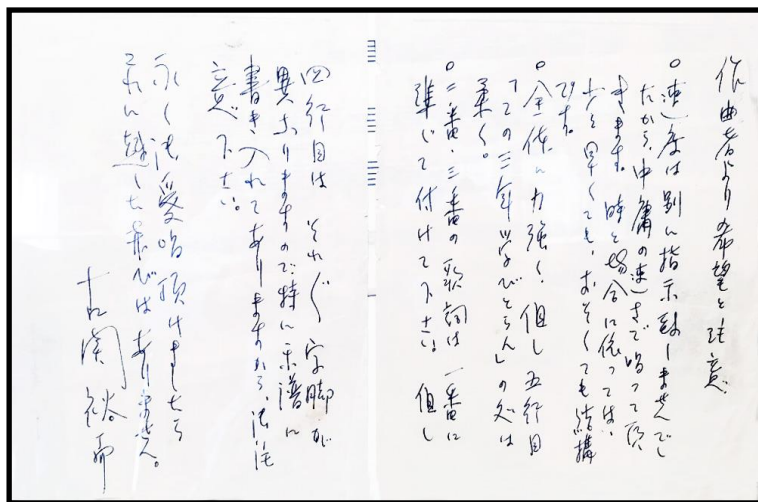 作曲者より希望と注意
○速度は別に指示致しませんでし
たから、中庸の速さで唱って頂
きます。時と場合に依っては、
少々早くても、おそくても結構
です。
○全体に力強く、但し五行目
「ての三年学びとらん」の処は
柔く。
○二番、三番の歌詞は一番に
準じて付けて下さい。但し
四行目は それぞれ字脚が
異なりますので特に楽譜に
書き入れてありますから、御注
意下さい。
永く御愛唱頂けましたら
これに越した喜びはありません。
古関裕而